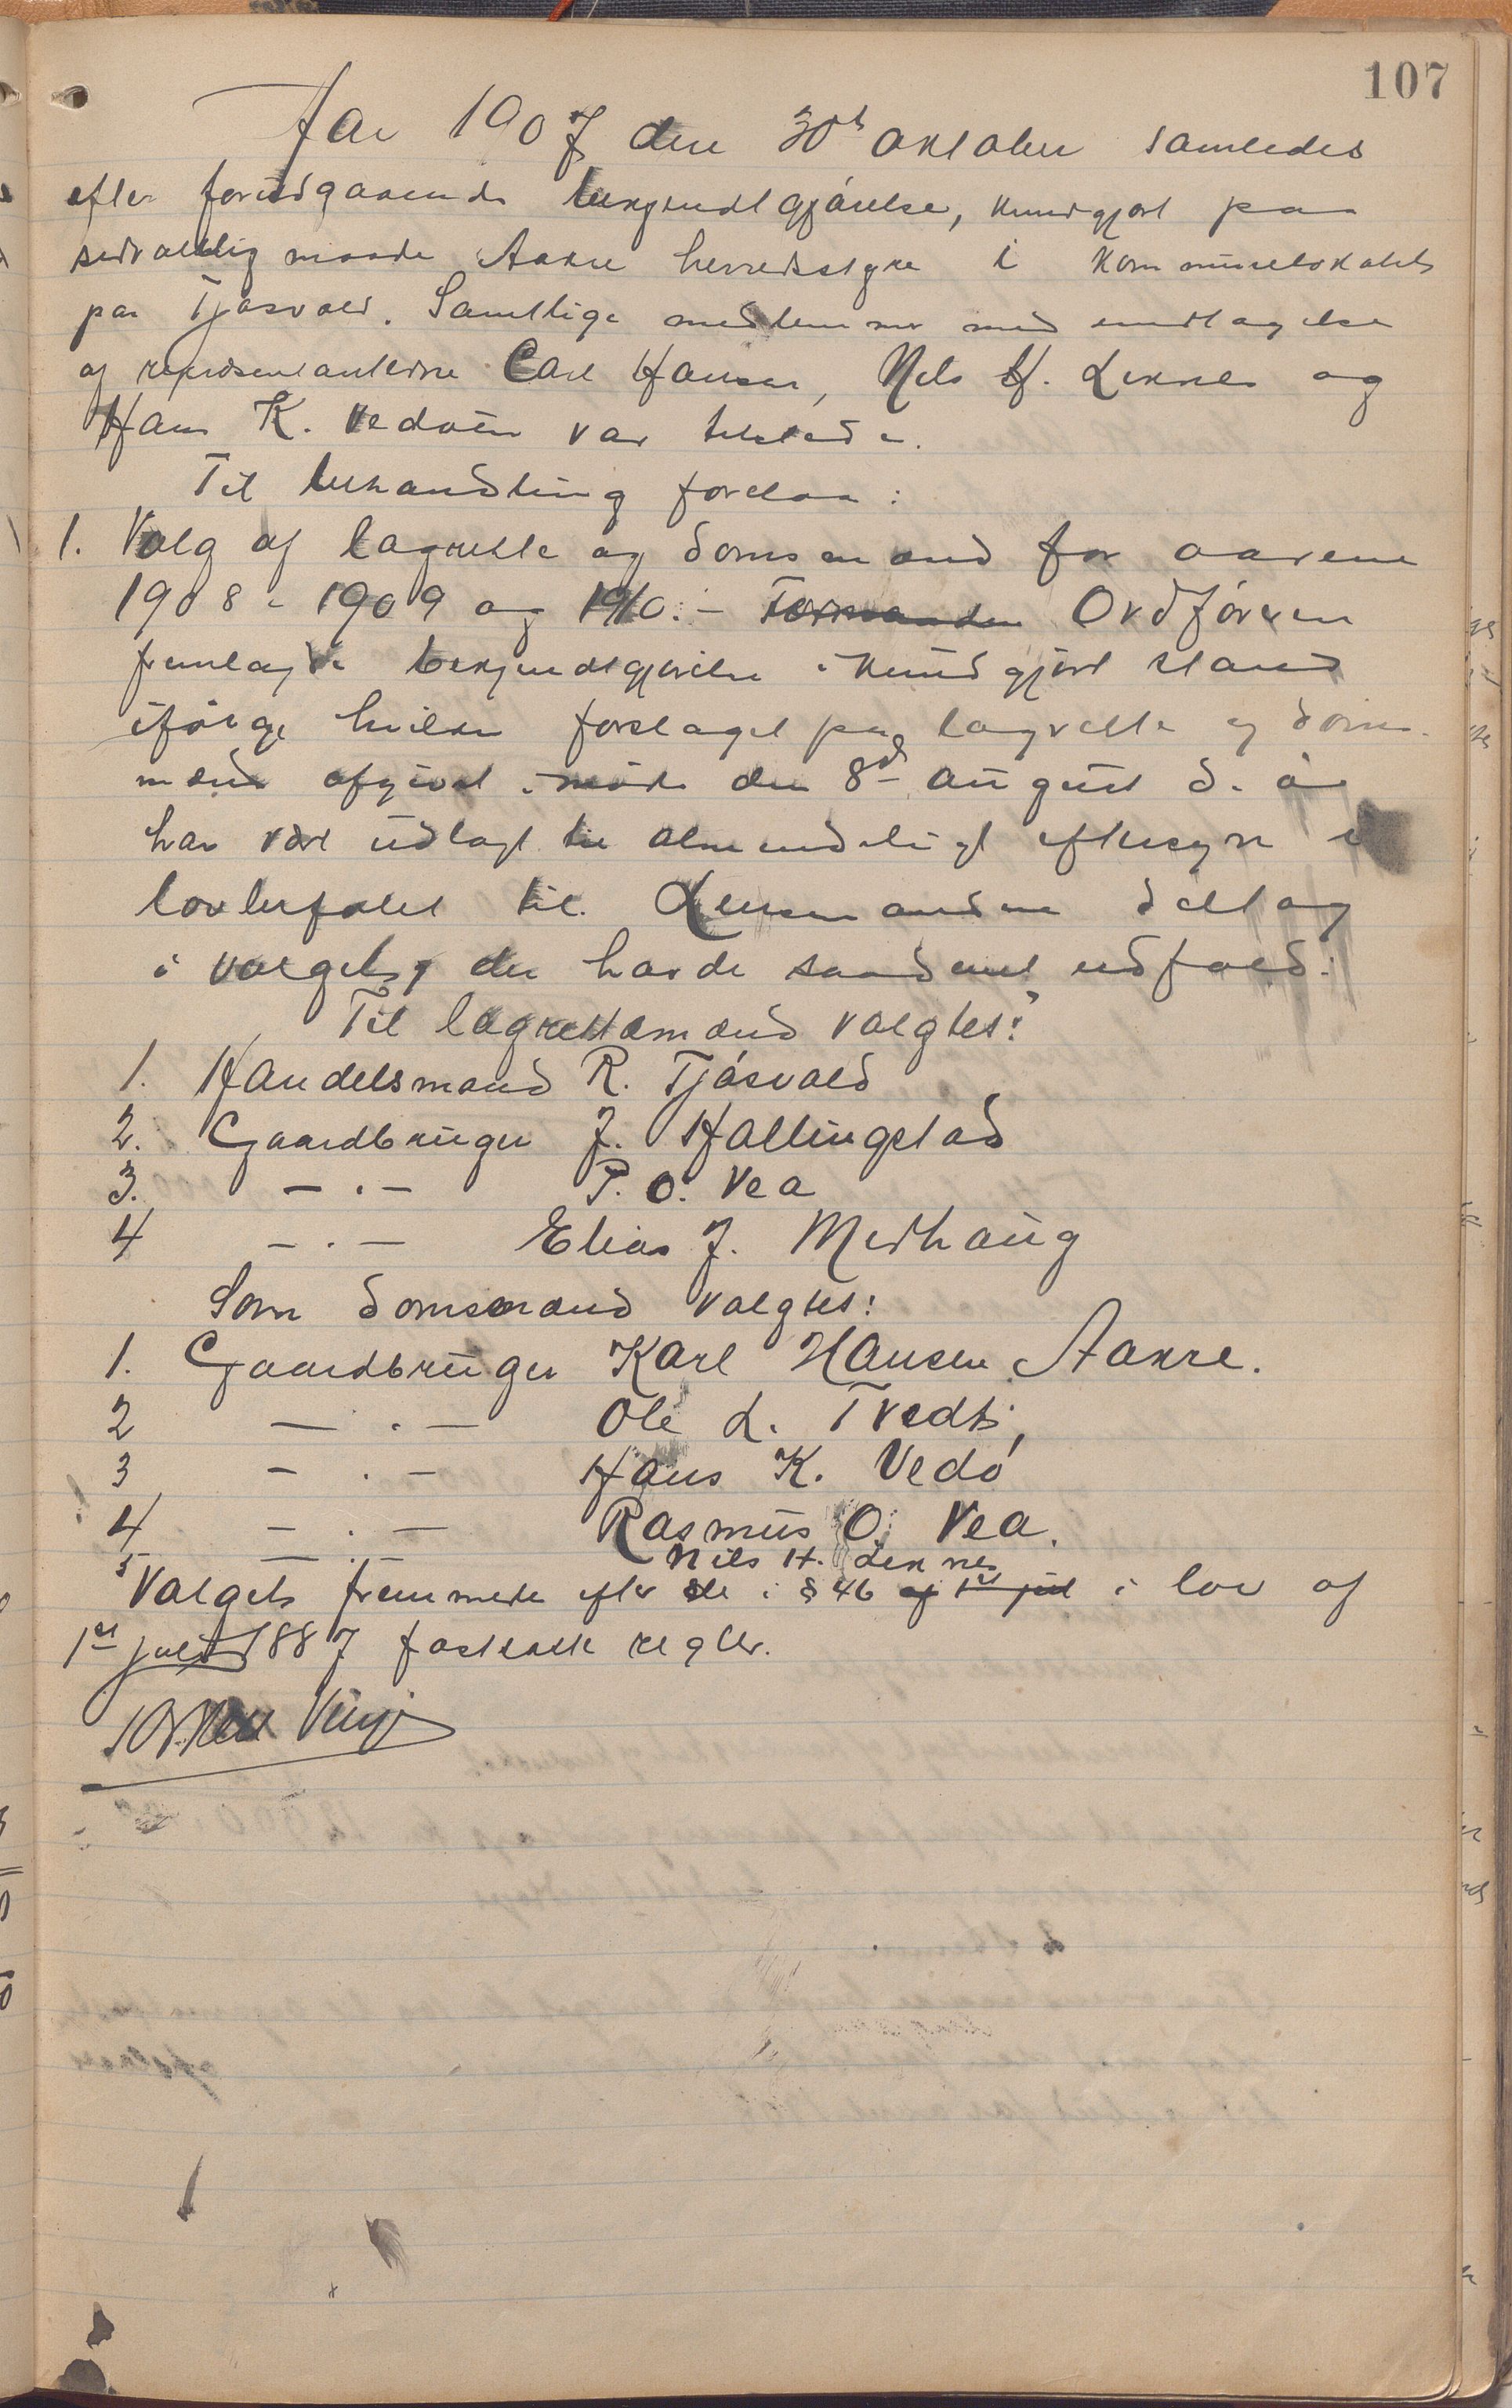 107
Aar 1907 den 30te oktober samledes
efter forudgaaende bekjendtgjørelse, kundgjort paa
sedvanlig maade Aakre herredsstyre i kommunelokalet
paa Tjøsvold. Samtlige medlemmer med undtagelse
af repræsentanterne Carl Hansen, Nils H. Liknes og
Hans K. Vedøen var tilstede.
Til behandling forelaa:
1. Valg af lagrette og domsmænd for aarene
1908 - 1909 og 1910. - Formanden Ordføreren
fremlagde bekjendtgjørelse i kundgjort stand
ifølge hvilken forslaget paa lagrette og doms-
mænd afgivet i møde den 8de august d. a
har vært udlagt til almindeligt eftersyn i
lovbefalet tid. Lensmanden deltog
i valget, der havde saadant udfald:
Til lagrettemænd valgtes:
1. Handelsmand R. Tjøsvold
2. Gaardbruger J. Hallingstad
3. - . - P. O. Vea
4 - . - Elias J. Medhaug
Som domsmænd valgtes:
1. Gaardbruger Karl Hansen Aakre.
2 - . - Ole L. Tvedt,
3 - . - Hans K. Vedø
4 - . - Rasmus O. Vea.
5 - . - Nils H. Liknes
Valgets fremmede efter de i § 46 af 1ste juli i lov af
1ste juli 1887 fastsatte regler.